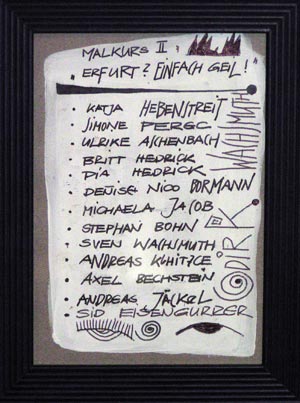 MALKURS II :
„ERFURT? EINFACH GEIL!"
• KATJA HEBENSTREIT
• SIMONE PERGC
• ULRIKE ASCHENBACH
• BRITT HEDRICK
• PIA HEDRICK
• DENISE NICO DORMANN
• MICHAELA JACOB
• STEPHAN BOHN
• SVEN WACHSMUTH
• ANDREAS
• AXEL BECHSTEIN
• ANDREAS JÄCKEL
• SID EISENGURRER
DIRK WACHSMUTH